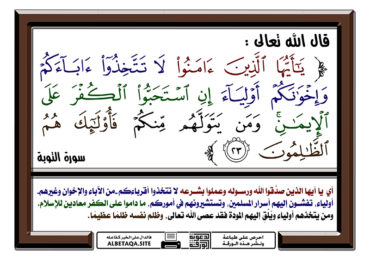 قال الله تعالى :
﴿ يَٰٓأَيُّهَا ٱلَّذِينَ ءَامَنُوا۟ لَا تَتَّخِذُوٓا۟ ءَابَآءَكُمْ
وَإِخْوَٰنَكُمْ أَوْلِيَآءَ إِنِ ٱسْتَحَبُّوا۟ ٱلْكُفْرَ عَلَى
ٱلْإِيمَٰنِ ۚ وَمَن يَتَوَلَّهُم مِّنكُمْ فَأُو۟لَٰٓئِكَ هُمُ
ٱلظَّٰلِمُونَ ٢٣ ﴾
سورة التوبة
أي يا أيها الذين صدّقوا الله ورسوله وعملوا بشرعه لا تتخذوا أقرباءكم ـ من الآباء والإخوان وغيرهم ـ
أولياء، تفشون إليهم أسرار المسلمين، وتستشيرونهم في أموركم، ما داموا على الكفر معادين للإسلام.
ومن يتخذهم أولياء ويلق إليهم المودة فقد عصى الله تعالى، وظلم نفسه ظلمًا عظيمًا.
احرص على طباعة
ونشر هذه الورقة
الدال على الخير كفاعله
ALBETAQA.SITE